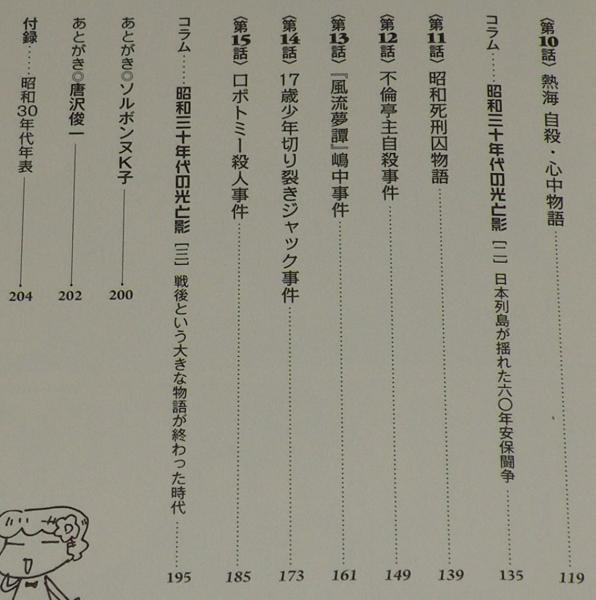 〈第10話〉熱海 自殺・心中物語……119
コラム……昭和三十年代の光と影［二］日本列島が揺れた六〇年安保闘争……135
〈第11話〉昭和死刑囚物語……139
〈第12話〉不倫亭主自殺事件……149
〈第13話〉『風流夢譚』嶋中事件……161
〈第14話〉17歳少年切り裂きジャック事件……173
〈第15話〉ロボトミー殺人事件……185
コラム……昭和三十年代の光と影［三］戦後という大きな物語が終わった時代……195
あとがき◎ソルボンヌK子 200
あとがき◎唐沢俊一 202
付録……昭和30年代年表 204